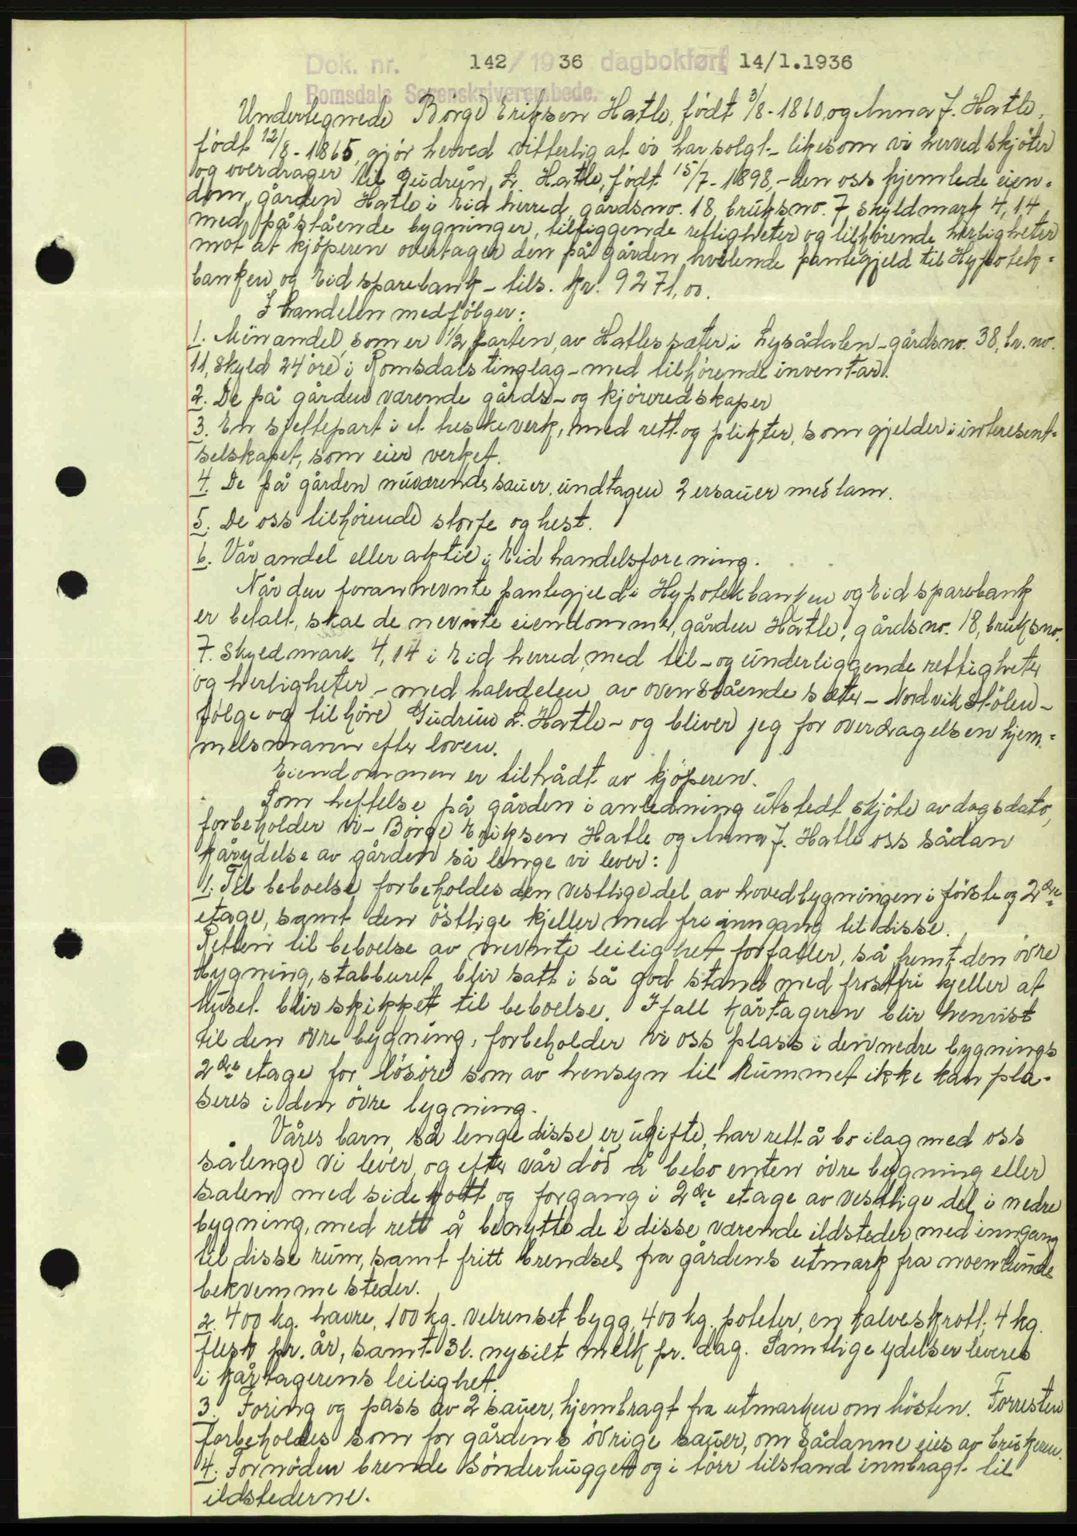 Dok. nr. 142/1936 dagbokført 14/1.1936
Romsdals Sorenskriverembede.
Undertegnede Börge Eriksen Hatle, født 3/8-1860, og Anna J. Hatle,
født 12/8-1865, gjör herved vitterlig at vi har solgt - likesom vi herved skjöter
og overdrager til Gudrun L. Hatle, født 15/7-1898, - den oss hjemlede eien-
dom, gården Hatle i Eid herred, gårdsno. 18, bruksno. 7 skyldmark 4,14
med påstående bygninger, tilliggende rettigheter og tilhörende herligheter
mot at kjöperen overtager den på gården hvilende pantegjeld til Hypotek-
banken og Eid sparebank - tils. kr. 9271,00.
I handelen medfölger:
1. Min andel, som er 1/2 parten, av Hatlesæter i Lysådalen - gårdsno. 38, br. no.
11, skyld 24 öre i Romsdals tinglag - med tilhörende inventar.
2. De på gården værende gårds- og kjöreredskaper
3. En sjettepart i et teskeverk, med rett og plikter, som gjelder i interesent-
selskapet, som eier verket.
4. De på gården nuværende sauer, undtagen 2 ersauer med lam.
5. De oss tilhörende storfe og hest.
6. Vår andel eller aktie i Eid handelsforening.
Når den forannevnte pantegjeld i Hypotekbanken og Eid sparebank
er betalt, skal de nevnte eiendommer, gården Hatle, gårdsno. 18, bruksno.
7. skyldmark 4,14 i Eid herred, med til- og underliggende rettigheter
og herligheter - med halvdelen av ovenstående sæter - Nordvikstölen -
følge og tilhöre Gudrun L. Hatle - og bliver jeg for overdragelsen hjem-
melsmann efter loven.
Eiendommen er tiltrådt av kjöperen.
Som heftelse på gården i anledning utstedt skjöte av dagsdato,
forbeholder vi - Börge Eriksen Hatle og Anna J. Hatle oss sådan
kårydelse av gården så lenge vi lever:
1. Til beboelse forbeholdes den vestlige del av hovedbygningen i förste og 2dre
etage, samt den östlige kjeller med fri inngang til disse.
Retten til beboelse av nevnte leilighet forfaller, så fremt den övre
bygning, stabburet blir satt i så god stand med frostfri kjeller at
huset blir skikket til beboelse. Ifall kårtageren blir henvist
til den övre bygning, forbeholder vi oss plass i den nedre bygnings
2dre etage for lösöre som av hensyn til rummet ikke kan pla-
seres i den övre bygning.
Våres barn, så lenge disse er ugifte, har rett å bo ilag med oss
sålenge vi lever, og efter vår död å bebo enten övre bygning eller
salen med sidekott og forgang i 2dre etage av vestlige del i nedre
bygning, med rett å benytte de i disse værende ildsteder, med inngang
til disse rum, samt fritt brendsel fra gårdens utmark fra noenlunde
bekvemme steder.
2. 400 kg. havre, 100 kg. velrenset bygg, 400 kg. poteter, en kalveskrott, 4 kg.
flesk pr. år, samt 3 l. nysilt melk pr. dag. Samtlige ydelser leveres
i kårtagerens leilighet.
3. Foring og pass av 2 sauer, hjembragt fra utmarken om hösten. Forresten
forbeholdes som for gårdens övrige sauer, om sådanne eies av brukeren.
4. Fornöden brende sönderhugget og i törr tilstand innbragt til
ildstederne.